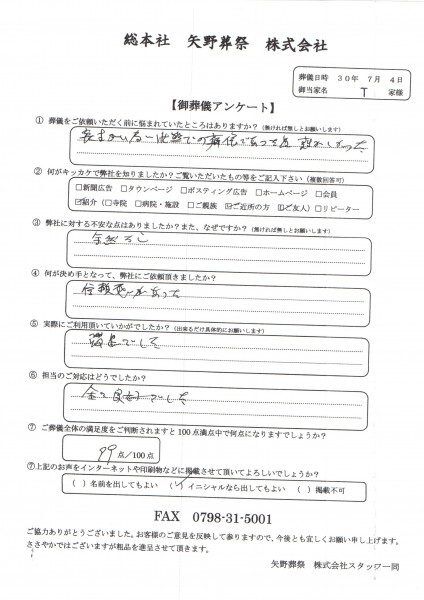 総本社 矢野葬祭 株式会社
葬儀日時 30年 7月 4日
御当家名 T 家様
【御葬儀アンケート】
① 葬儀をご依頼いただく前に悩まれていたところはありますか?(無ければ無しとお願いします)
② 何がキッカケで弊社を知りましたか?ご覧いただいたもの等をご記入下さい(複数回答可)
□新聞広告 □タウンページ □ポスティング広告 □ホームページ □会員
☑紹介(□寺院 □病院・施設 □ご親族 ☑ご近所の方 ☑ご友人) □リピーター
③ 弊社に対する不安な点はありましたか?また、なぜですか?(無ければ無しとお願いします)
全然なし
④ 何が決め手となって、弊社にご依頼頂きましたか?
信頼感があった
⑤ 実際にご利用頂いていかがでしたか?(出来るだけ具体的にお願いします)
満足でした
⑥ 担当のご対応はどうでしたか?
良好でした
⑦ ご葬儀全体の満足度をご判断されますと100点満点中で何点になりますでしょうか?
99点/100点
⑦上記のお声をインターネットや印刷物などに掲載させて頂いてよろしいでしょうか?
( )名前を出してもよい (✓)イニシャルなら出してもよい ( )掲載不可
FAX 0798-31-5001
ご協力ありがとうございました。お客様のご意見を反映して参りますので、今後とも宜しくお願い申し上げます。
ささやかではございますが粗品を進呈させて頂きます。
矢野葬祭 株式会社スタッフ一同